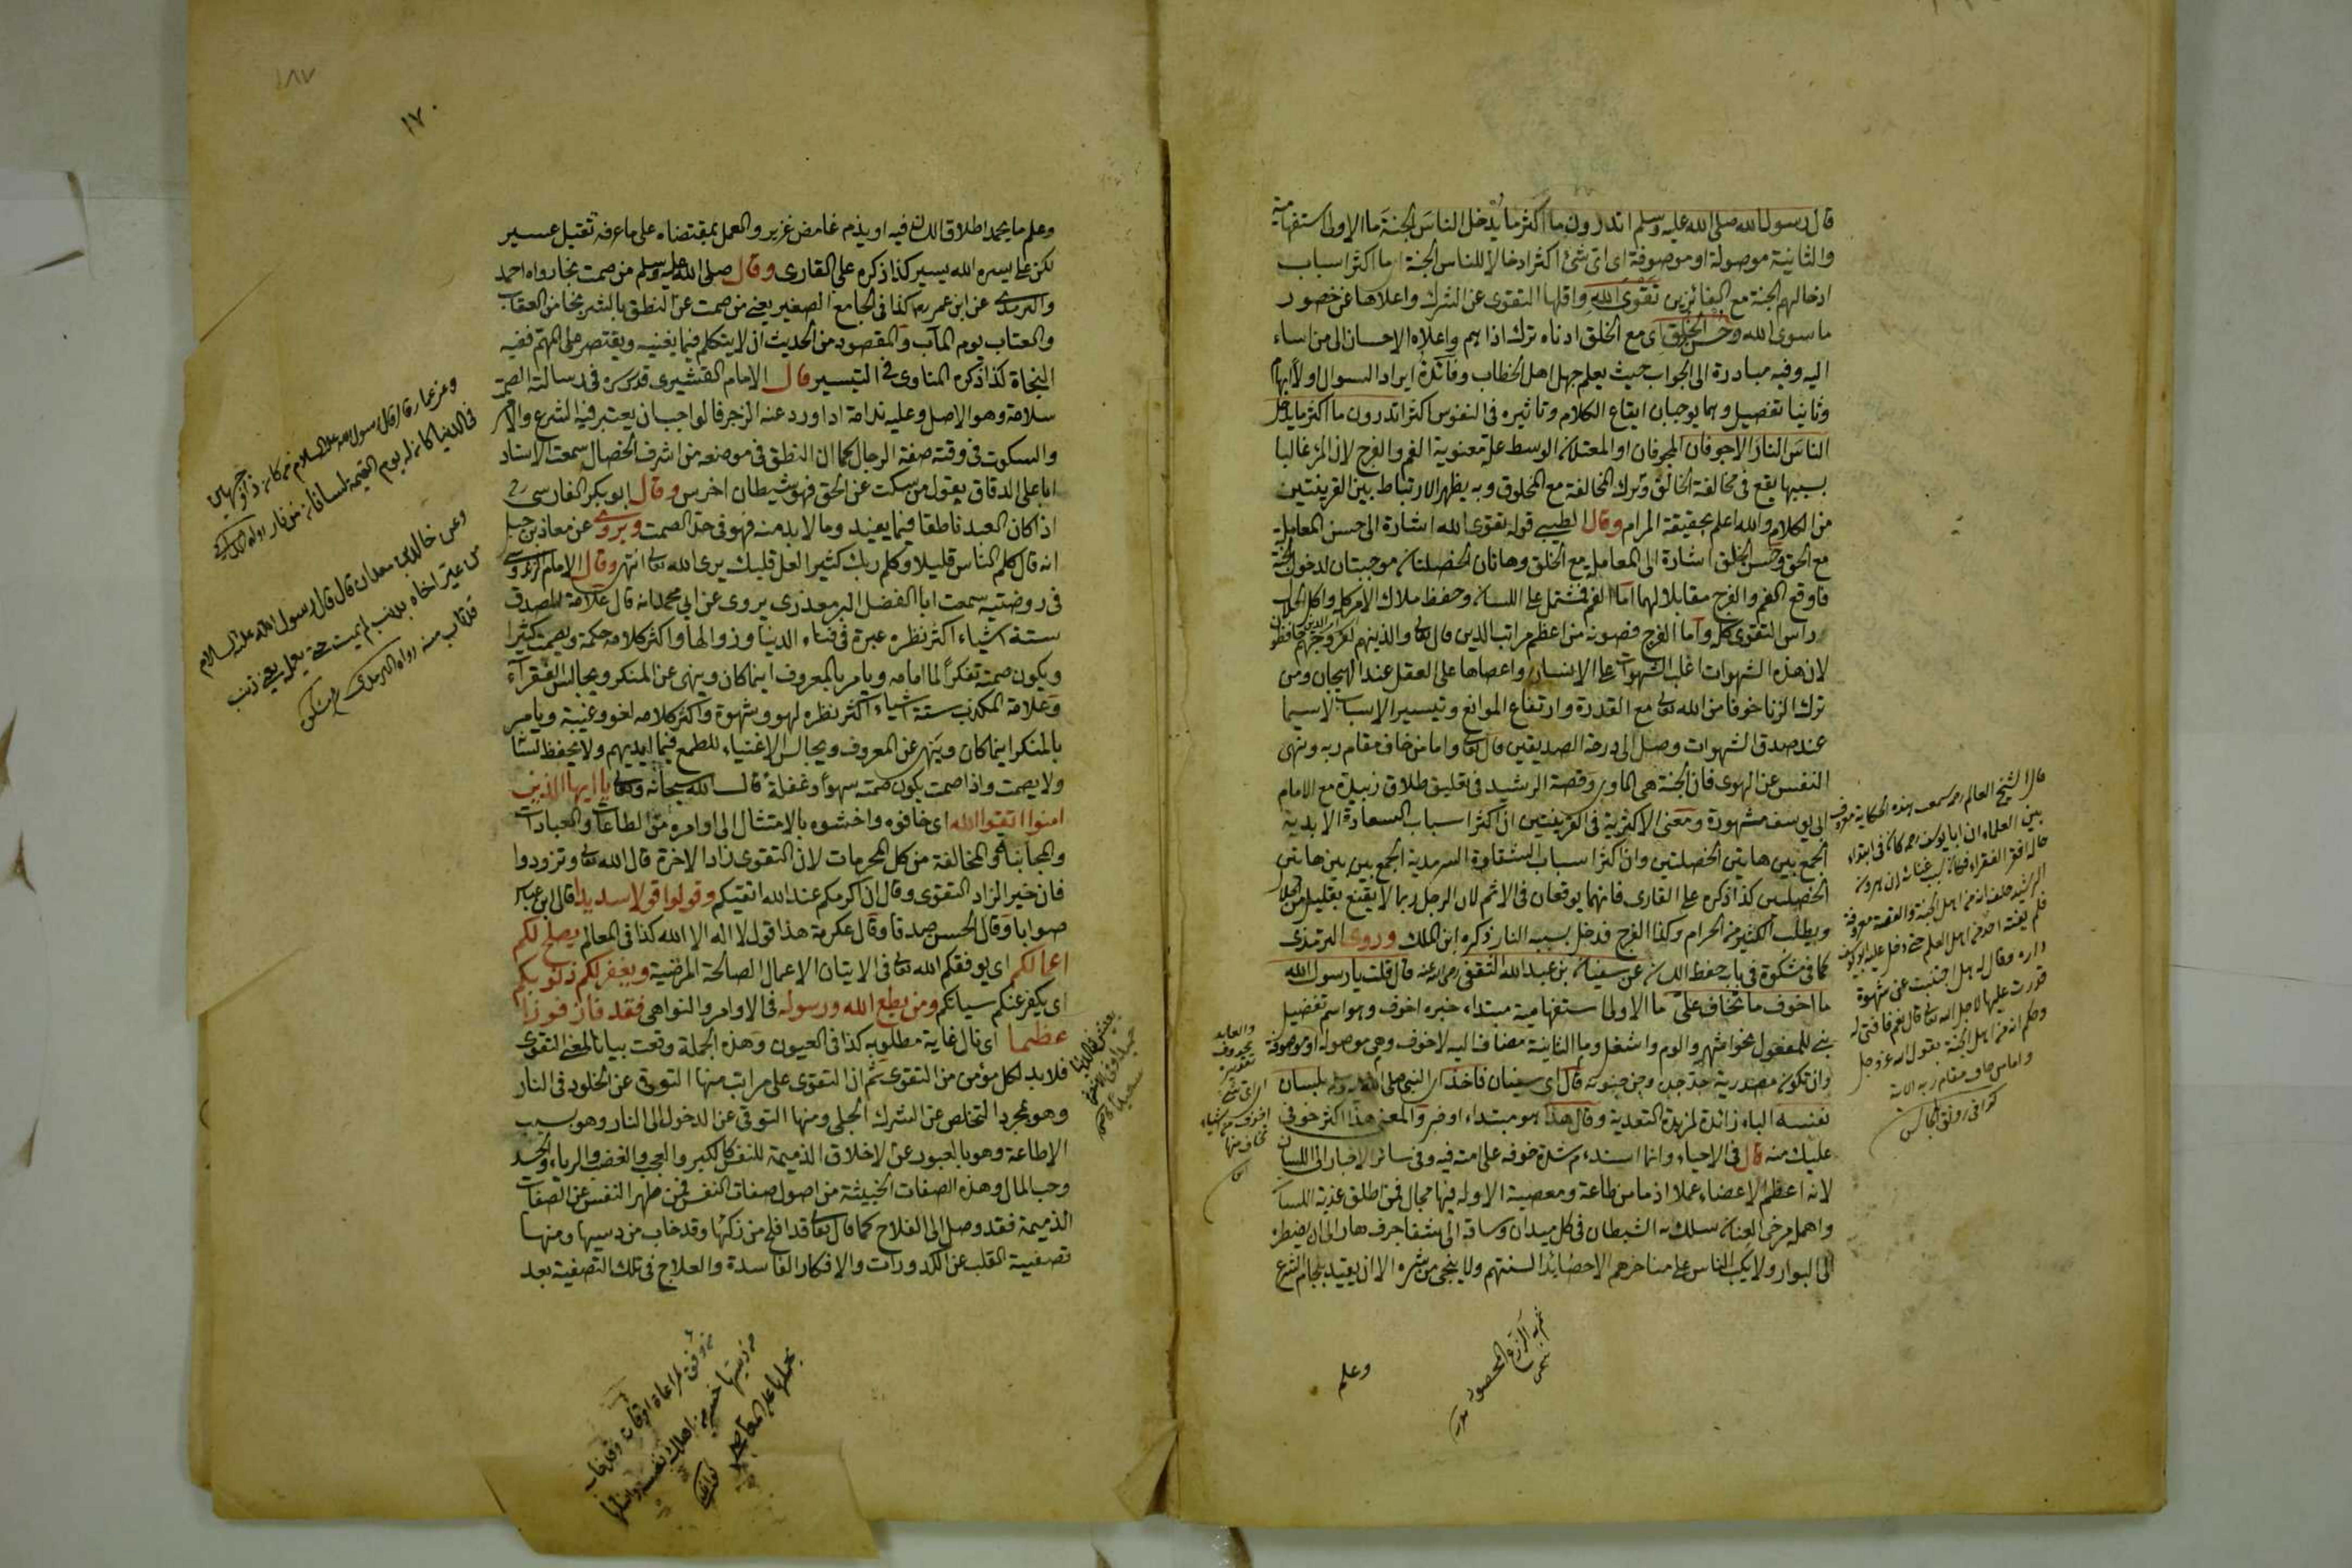 قال رسول الله صلى الله عليه وسلم اتدرون ما اكثر ما يدخل الناس الجنة ما الاولى استفهامية
والثانية موصولة او موصوفة اى اى شئ اكثر ادخالا للناس الجنة اى ما اكثر اسباب
ادخالهم الجنة مع الفائزين تقوى الله واقلها التقوى عن الشرك واعلاها عن خصور
ما سوى الله وحسن الخلق اى مع الخلق ادناه ترك اذاهم واعلاه الاحسان الى من اساء
اليه وفيه مبادرة الى الجواب حيث يعلم جهل اهل الخطاب وفائدة ايراد السوال اولا ابهام
وثانيا تفصيل وهما يوجبان ايقاع الكلام وتاثيره فى النفوس اكثر اتدرون ما اكثر ما يدخل
الناس النار الاجوفان المجوفان او المعتلان الوسط علة معنوية الفم والفرج لان المرء غالبا
بسببهما يقع فى مخالفة الخالق وترك المخالفة مع المخلوق وبه يظهر الارتباط بين القرينتين
من الكلام والله اعلم بحقيقة المرام وقال الطيبى قوله تقوى الله اشارة الى حسن المعاملة
مع الحق وحسن الخلق اشارة الى المعاملة مع الخلق وهاتان الخصلتان موجبتان لدخول الجنة
فاوقع الفم والفرج مقابلا لهما اما الفم فمشتمل على اللسان وحفظه ملاك الامر كله واكل الحلال
راس التقوى كله واما الفرج فصونه من اعظم مراتب الدين قال تعالى والذينهم لفروجهم حافظون
لان هذه الشهوات اغلب الشهوات على الانسان واعصاها على العقل عند الهيجان ومن
ترك الزنا خوفا من الله تعالى مع القدرة وارتفاع الموانع وتيسير الاسباب لا سيما
عند صدق الشهوات وصل الى درجة الصديقين قال تعالى واما من خاف مقام ربه ونهى
النفس عن الهوى فان الجنة هى الماوى وقصة الرشيد فى تعليق طلاق زبيدة مع الامام
ابى يوسف مشهورة ومعنى الاكثرية فى القرينتين ان اكثر اسباب السعادة الابدية
الجمع بين هاتين الخصلتين وان اكثر اسباب الشقاوة السرمدية الجمع بين بين هاتين
الخصلتين كذا ذكره على القارى فانهما يوقعان فى الاثم لان الرجل ربما لا يقنع بقليل من الحلال
ويطلب الكثير من الحرام وكذا الفرج فدخل بسببه النار ذكره ابن الملك وروى الترمذى
كما فى مشكوة فى باب حفظ اللسان عن سفيان بن عبد الله الثقفى رضى الله عنه قال قلت يا رسول الله
ما اخوف ما تخاف على ما الاولى استفهامية مبتداء خبره اخوف وهو اسم تفضيل
بنى للمفعول نحو اشهر والوم واشغل وما الثانية مضاف اليه لاخوف وهى موصولة او موصوفة
وان تكون مصدرية جد جده وجن جنونه قال اى سفيان فاخذ اى النبى صلى الله عليه وسلم بلسان
نفسه الباء زائدة لمزيدة التعدية وقال هذا هو مبتداء او خبر والمعنى هذا اكثر خوفى
عليك منه قال فى الاحياء وانما اسند م شدة خوفه على امته فيه وفى سائر الاخبار الى اللسان
لانه اعظم الاعضاء عملا اذ ما من طاعة ومعصية الا وله فيها مجال فمن اطلق عذبة اللسان
واهمله مرخى العنان سلك به الشيطان فى كل ميدان وساقه الى شفا جرف هار الى ان اضطره
الى البوار ولا يكب الناس على مناخرهم الا حصائد السنتهم ولا ينجى من شره الا ان يقيد بلجام الشرع
وعلم
قال الشيخ العالم سمعت هذه الحكاية معروف
بين العلماء ان ابا يوسف رحمه كان فى ابتداء
فلم يفته احد من اهل العلم حتى دخل عليه ابو يوسف
داره وقال له هل اجتنبت عن شهوة
قدرت عليها لاجل الله تعالى قال نعم فافتى له
وحكم انه من اهل الجنة بقول الله عز وجل
واما من خاف مقام ربه الاية
كذا فى رونق المجالس
١٧٠
١٨٧
وعلم ما يحمد اطلاق اللسان فيه او يذم غامض عزيز والعمل بمقتضاه على ما عرفه ثقيل عسير
لكن على يسره الله يسير كذا ذكره على القارى وقال صلى الله عليه وسلم من صمت نجا رواه احمد
والترمذى عن ابن عمر رضى كذا فى الجامع الصغير يعنى من صمت عن النطق بالشر نجا من العقاب
والعتاب يوم المآب والمقصود من الحديث ان لا يتكلم فيما يعنيه ويقتصر على المهم ففيه
النجاة كذا ذكره المناوى فى التيسير قال الامام القشيرى قدس سره فى رسالته الصمت
سلامة وهو الاصل وعليه ندامة اذا ورد عنه الزجر فالواجب ان يعتبر فيه الشرع والامر
والسكوت فى وقته صفة الرجال كما ان النطق فى موضعه من اشرف الخصال سمعت الاستاد
ابا على الدقاق يقول من سكت عن الحق فهو شيطان اخرس وقال ابو بكر الفارسى رح
اذا كان العبد ناطقا فيما يعنيه وما لا بد منه فهو فى حد الصمت ويروى عن معاذ بن جبل
انه قال كلم الناس قليلا وكلم ربك كثيرا لعل قلبك يرى الله تعالى انتهى وقال الامام الزندوستى
فى روضته سمعت ابا الفضل البرمعذرى يروى عن ابى محمد انه قال علامة المصدق
ستة اشياء اكثر نظره عبرة فى فناء الدنيا وزوالها واكثر كلامه حكمة ويصمت كثيرا
ويكون صمته تفكرا لما امامه ويامر بالمعروف اينما كان وينهى عن المنكر ويجالس الفقراء
وعلامة المكذب ستة اشياء اكثر نظره لهو وشهوة واكثر كلامه لغو وغيبة ويامر
بالمنكر اينما كان وينهى عن المعروف ويجالس الاغنياء للطمع فيما ايديهم ولا يحفظ لسانا
ولا يصمت واذا صمت يكون صمته سهوا وغفلة قال الله سبحانه وتعالى يا ايها الذين
امنوا اتقوا الله اى خافوه واخشوه بالامتثال الى اوامره من الطاعات والعبادات
والمجانبة والمخالفة من كل المحرمات لان التقوى زاد الاخرة قال الله تعالى وتزودوا
فان خير الزاد التقوى وقال ان اكرمكم عند الله اتقيكم وقولوا قولا سديدا قال ابن عباس
صوابا وقال الحسن صدقا وقال عكرمة هذا قول لا اله الا الله كذا فى المعالم يصلح لكم
اعمالكم اى يوفقكم الله تعالى فى الاتيان الاعمال الصالحة المرضية ويغفر لكم ذنوبكم
اى يكفر عنكم سياتكم ومن يطع الله ورسوله فى الاوامر والنواهى فقد فاز فوزا
عظيما اى نال غاية مطلوبه كذا فى العيون وهذه الجملة وقعت بيانا لمعنى التقوى
فلا بد لكل مؤمن من التقوى ثم ان التقوى على مراتب منها التوقى عن الخلود فى النار
وهو بمجرد التخلص عن الشرك الجلى ومنها التوقى عن الدخول الى النار وهو بسبب
الاطاعة وهو بالعبور عن الاخلاق الذميمة للنفس كالكبر والعجب والغضب والرياء والحسد
وحب المال وهذه الصفات الخبيثة من اصول صفات النفس فمن طهر النفس عن الصفات
الذميمة فقد وصل الى الفلاح كما قال تعالى قد افلح من زكيها وقد خاب من دسيها ومنها
تصفية القلب عن الكدورات والافكار الفاسدة والعلاج فى تلك التصفية بعد
وعن عمار قال قال رسول الله عليه السلام من كان ذا وجهين
فى الدنيا كان له يوم القيمة لسانان من نار رواه
وعن خالد بن معدان قال قال رسول الله عليه السلام
من عير اخاه بذنب لم يمت حتى يعمله يعنى ذنب
قد تاب منه رواه الترمذى